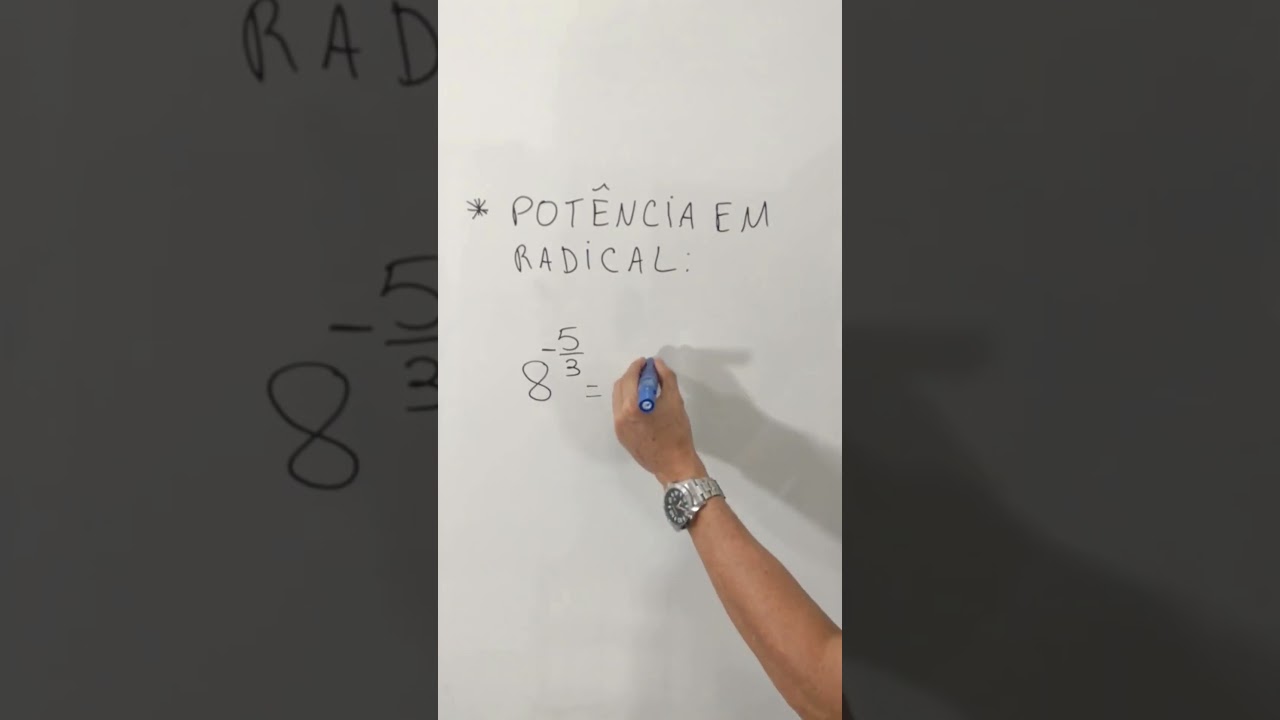 * POTÊNCIA EM
RADICAL:
8^{-\frac{5}{3}} =